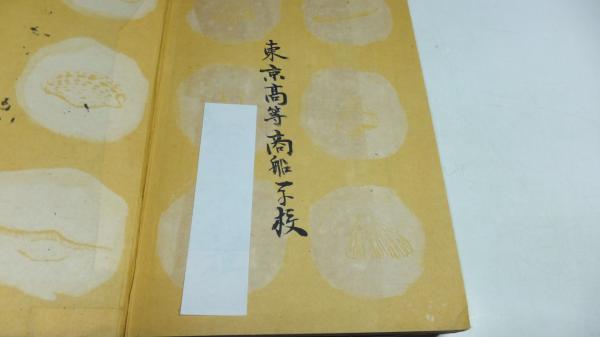 東京高等商船学校